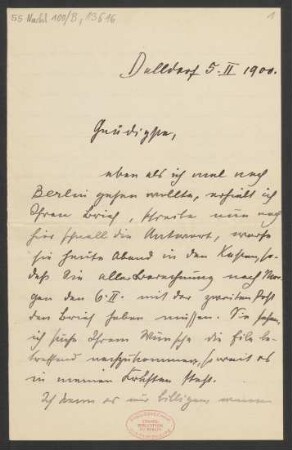 55 Nachl 100/B, 13616
1
Dalldorf 5. II 1900.
Gnädigste,
eben als ich mal nach
Berlin gehen wollte, erhielt ich
Ihren Brief, schreibe nun noch
hier schnell die Antwort, werfe
sie heute Abend in den Kasten, so
daß Sie aller Berechnung nach Mor-
gen den 6. II. mit der zweiten Post
den Brief haben müssen. Sie sehen,
ich suche Ihrem Wunsche die Eile be-
treffend nachzukommen, soweit es
in meinen Kräften steht.
Ich kann es nur billigen, wenn